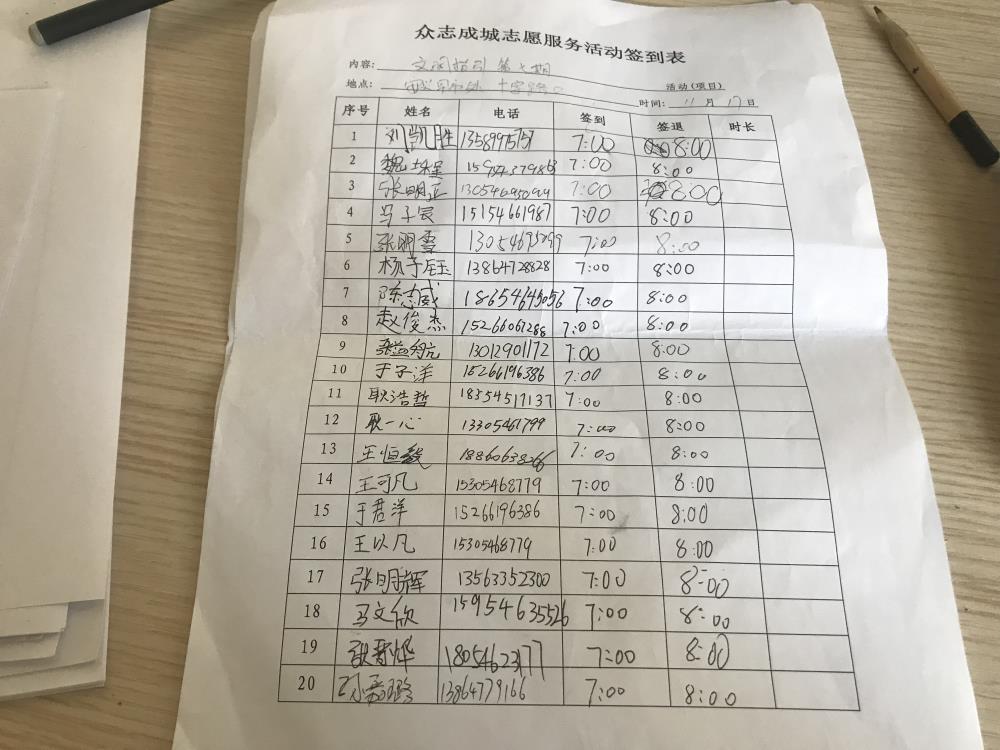 众志成城志愿服务活动签到表
内容: 文明指引 第七期 活动(项目)
地点: 十字路口 时间: 11 月 17 日
序号 姓名 电话 签到 签退 时长
1 刘凯胜 13589975757 7:00 8:00
2 魏 7:00 8:00
3 张明正 13054695099 7:00 8:00
4 马子宸 15154661987 7:00 8:00
5 张明雪 13054695099 7:00 8:00
6 杨子钰 13864728828 7:00 8:00
7 陈志威 18654645056 7:00 8:00
8 赵俊杰 15266061288 7:00 8:00
9 张益航 13012901172 7:00 8:00
10 于子洋 15266196386 7:00 8:00
11 耿浩哲 18354517137 7:00 8:00
12 耿一心 13305461799 7:00 8:00
13 王恒毅 18860638266 7:00 8:00
14 王可凡 15305468779 7:00 8:00
15 于君洋 15266196386 7:00 8:00
16 王以凡 15305468779 7:00 8:00
17 张明辉 13563352300 7:00 8:00
18 马文欣 15954635526 7:00 8:00
19 张晋烨 1805462377 7:00 8:00
20 13864779166 7:00 8:00